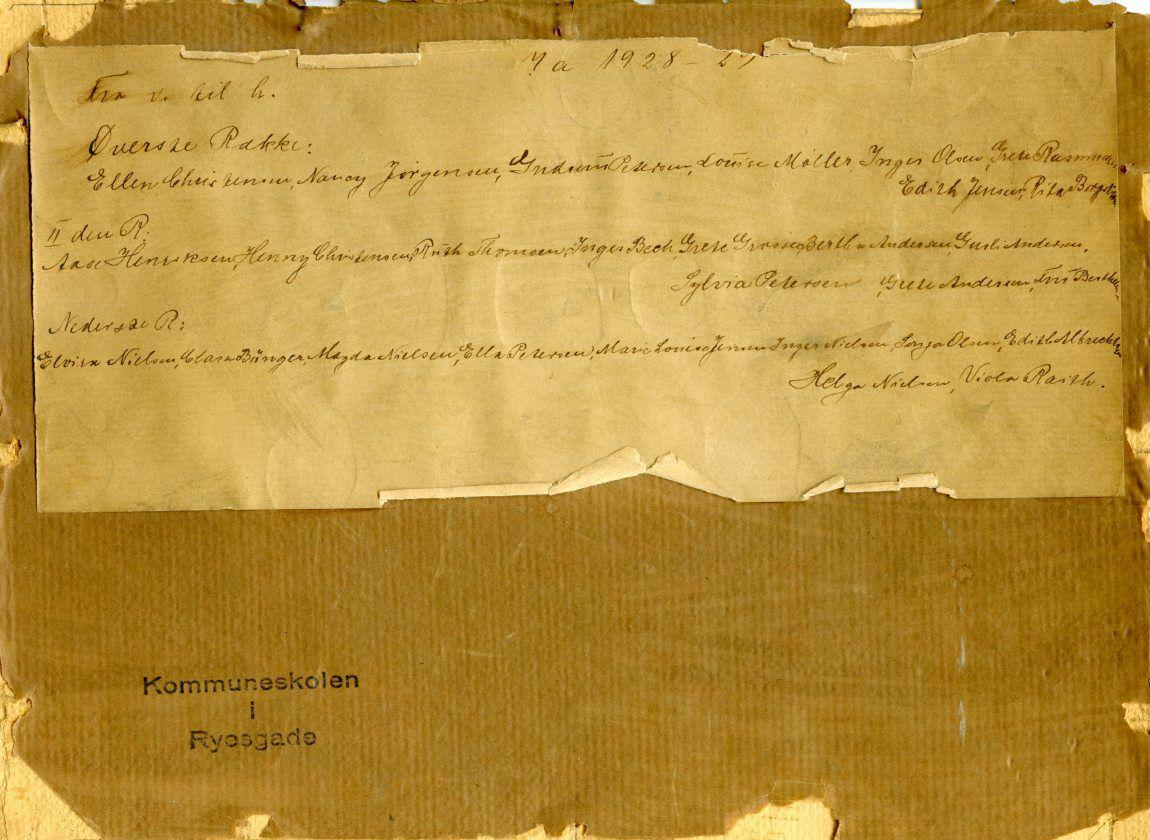 7a 1928-29
Fra v. til h.
Øverste Række:
Ellen Christensen, Nancy Jørgensen, Gudrun Petersen, Louise Møller, Inger Olsen, Grete Rasmussen
Edith Jensen, Rita
II den R.
Aase Henriksen, Henny Christensen, Ruth Thomsen, Inger Bech, Grete Bertha Andersen, Gurli Andersen,
Sylvia Petersen, Grete Andersen, Frk
Nederste R:
Elvira Nielsen, Clara Bünger, Magda Nielsen, Ella Petersen, Marie Louise Jensen Inger Nielsen, Sonja Olsen, Edith
Helga Nielsen, Viola Raith.
Kommuneskolen
i
Ryesgade